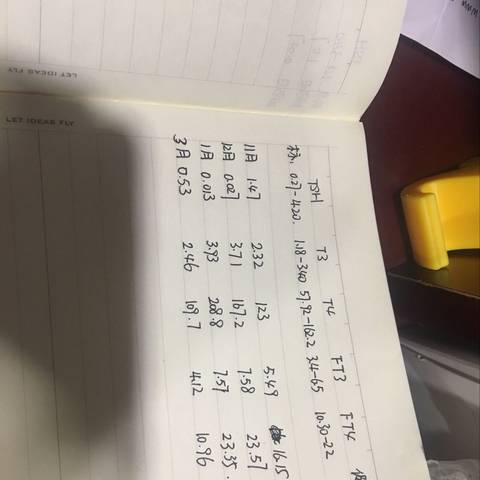 LET IDEAS FLY
LET IDEAS FLY
TSH T3 T4 FT3 FT4
标: 0.27-4.20. 1.08-3.40 57.92-162.2 3.4-6.5 10.30-22
11月 1.47 2.32 123 5.49 16.15
12月 0.027 3.71 167.2 7.58 23.57
1月 0.013 3.93 208.8 7.57 23.35.
3月 0.53 2.46 109.7 4.12 10.96